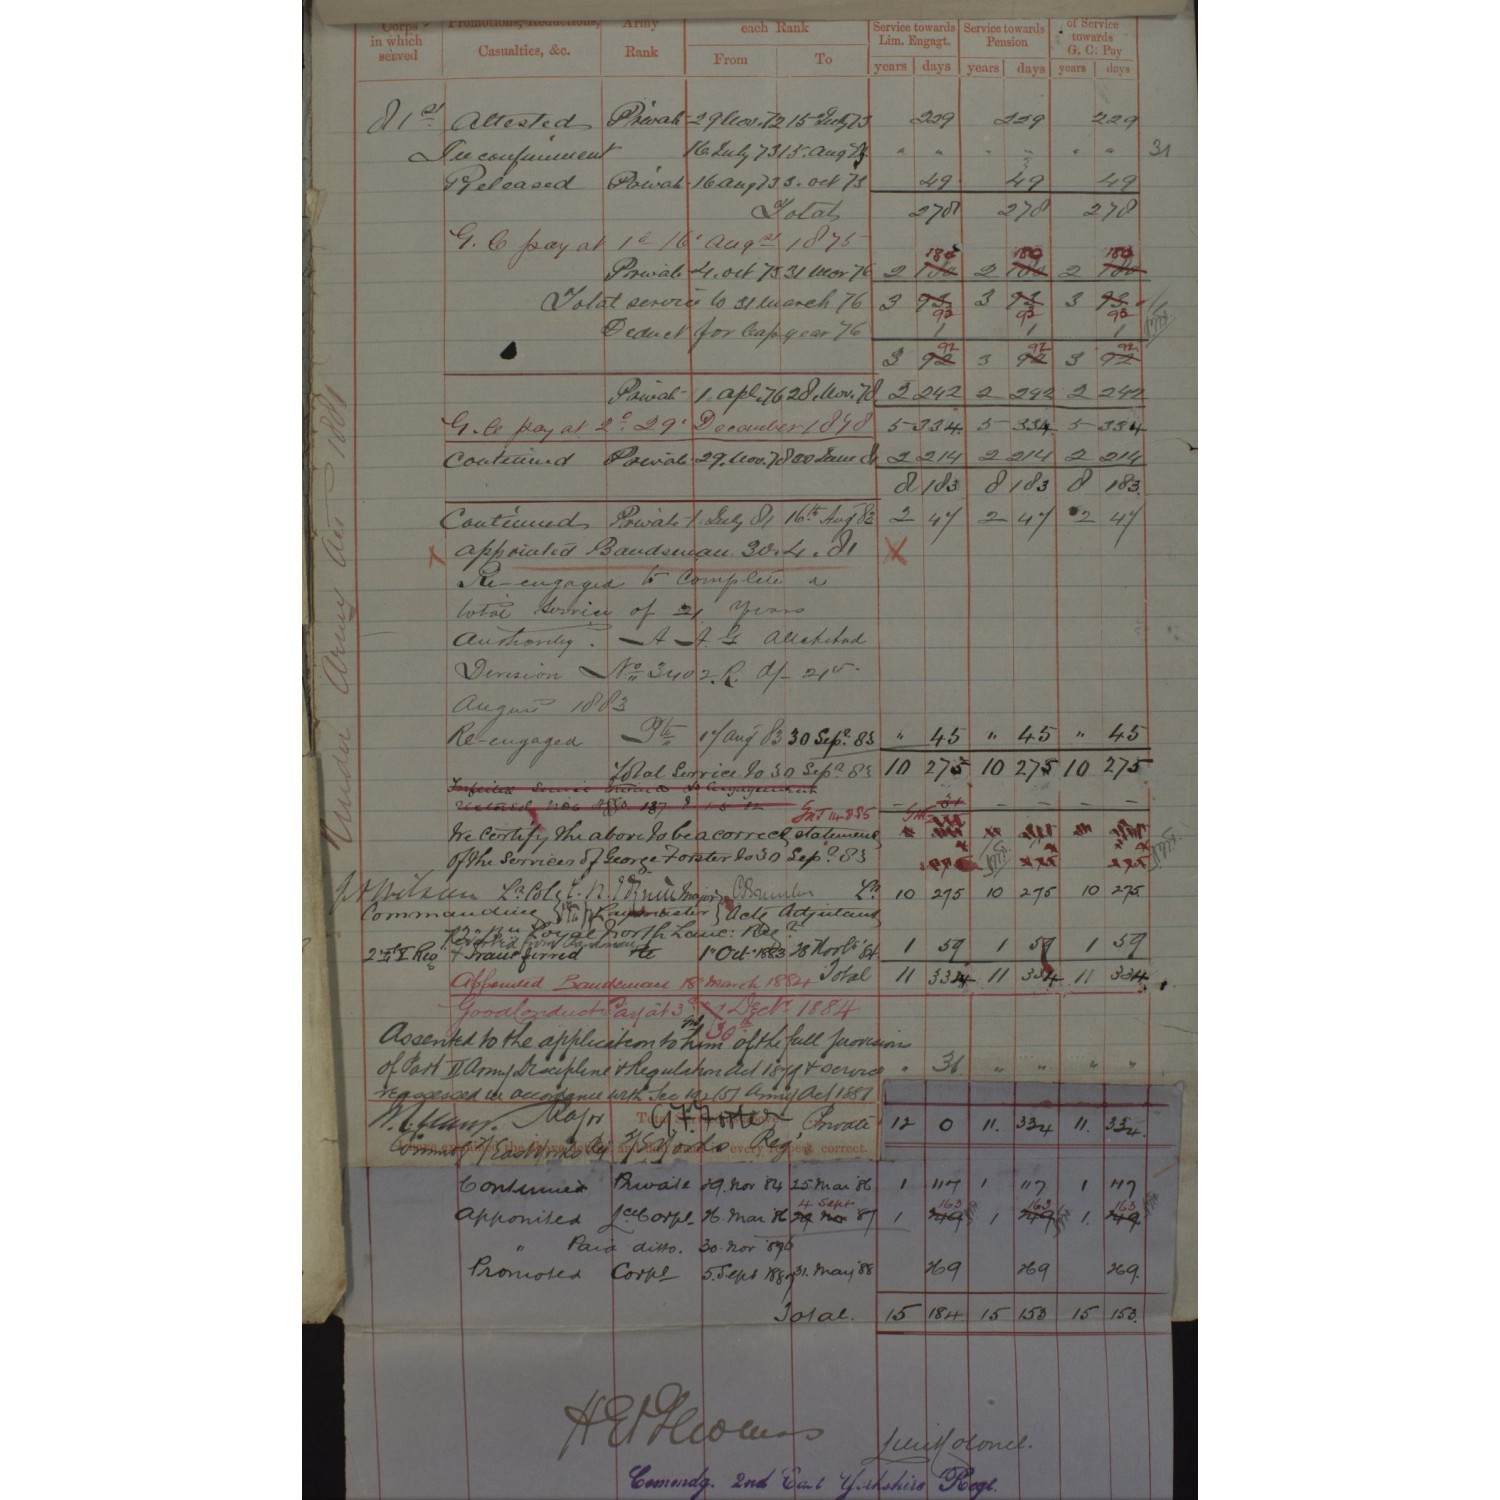 Corps in which served | Promotions, Reductions, Casualties, &c. | Army Rank | each Rank From To | Service towards Lim. Engagt. years days | Service towards Pension years days | of Service towards G. C. Pay years days
81st Attested Private 29 Nov. 72 15 July 73 229 229 229
In confinement 16 July 73 15 Aug 73 " " " " " " 31
Released Private 16 Aug 73 3 Oct 73 49 49 49
Total 278 278 278
G. C pay at 1d 16 Augst 1875
Private 4 Oct 73 31 Mar 76 2 180 2 180 2 180
Total service to 31 March 76 3 93 3 93 3 93
Deduct for leap year 76 1 1 1
3 92 3 92 3 92
Private 1 Apl. 76 28 Nov. 78 2 242 2 242 2 242
G. C pay at 2d. 29 December 1878 5 334 5 334 5 334
Continued Private 29 Nov. 78 30 June 81 2 214 2 214 2 214
8 183 8 183 8 183
Continued Private 1 July 81 16th Aug 83 2 47 2 47 2 47
x Appointed Bandsman 30.4.81 X
Under Army Act 1881
Re-engaged to Complete a
total Service of 21 Years
Authority. A A G Allahabad
Division No 3402.R. d/- 21st
August 1883
Re-engaged Pte 17 Aug 83 30 Sepr. 83 " 45 " 45 " 45
Total Service to 30 Sepr 83 10 275 10 275 10 275
31
We certify the above to be a correct statement
of the Services of George Forster to 30 Sepr 83
Wilson Lt Col Major Lt 10 275 10 275 10 275
Commanding Paymaster Actg Adjutant
Royal North Lanc: Reg
Transferred Pte 1 Oct 1883 28 Novr 84 1 59 1 59 1 59
Total 11 334 11 334 11 334
Appointed Bandsman 18 March 1884
Good Conduct Pay at 3d Decr 1884
30th
Assented to the application to him of the full provision
of Part II Army Discipline & Regulation Act 1879 & service
" 31 " " " "
reckoned in accordance with Sec Army Act 1881
Major G. F. Forster Private 12 0 11. 334 11. 334.
every respect correct.
Continued Private 29. Nov 84 25 Mar 86 1 117 1 117 1 117
Appointed Lce Corpl 26. Mar 86 4 Sept 87 1 163 1 163 1. 163
" Paid ditto. 30. Nov
Promoted Corpl 5. Sept 1887 31. May 88 269 269 269
Total. 15 184 15 153 15 153.
Lieut Colonel.
Comondg. 2nd East Yorkshire Regt.